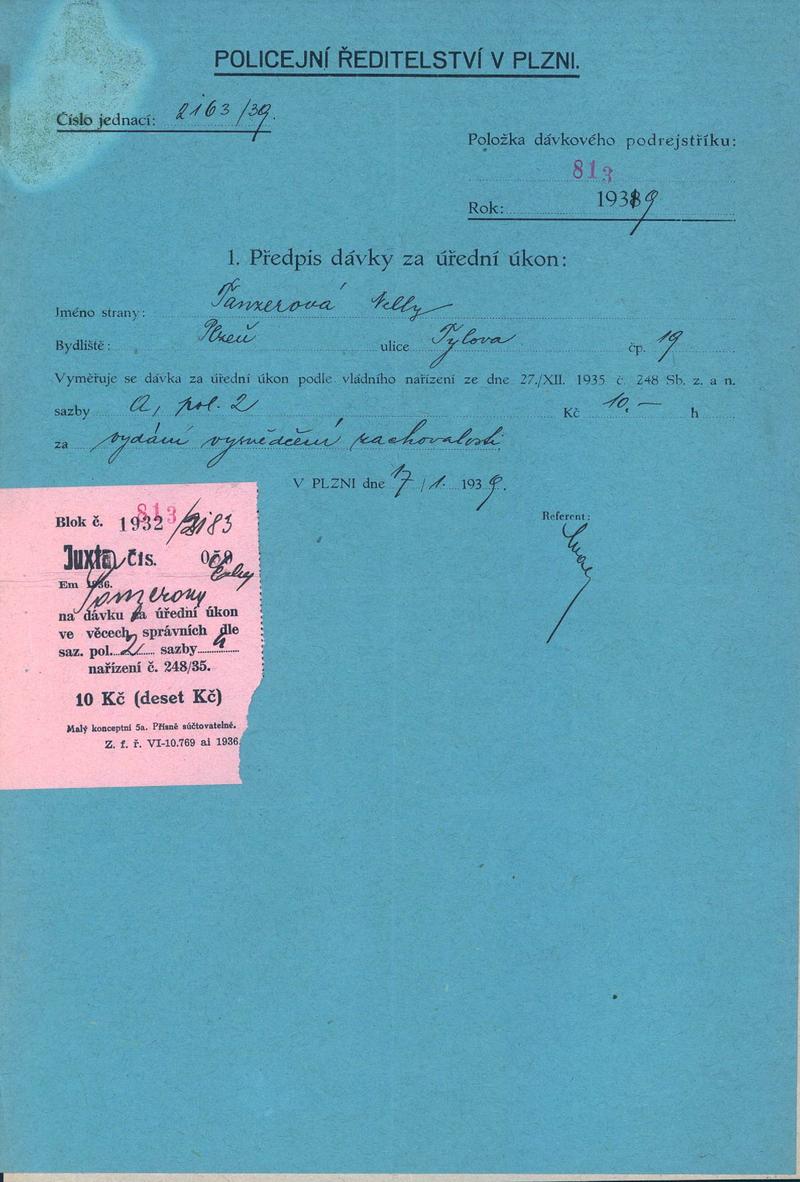 POLICEJNÍ ŘEDITELSTVÍ V PLZNI.
Číslo jednací: 2163/39.
Položka dávkového podrejstříku:
813
Rok: 1939
1. Předpis dávky za úřední úkon:
Jméno strany: Tanzerová Nelly
Bydliště: Plzeň ulice Tylova čp. 19
Vyměřuje se dávka za úřední úkon podle vládního nařízení ze dne 27./XII. 1935 č. 248 Sb. z. a n.
sazby A, pol. 2 Kč 10.— h
za vydání vysvědčení zachovalosti
V PLZNI dne 17/1. 1939.
Referent:
Blok č. 1932 813
Juxta čís.
Em 1936.
na dávku za úřední úkon
ve věcech správních dle
saz. pol. 2 sazby
nařízení č. 248/35.
10 Kč (deset Kč)
Malý konceptní 5a. Přísně súčtovatelné.
Z. f. ř. VI-10.769 ai 1936.